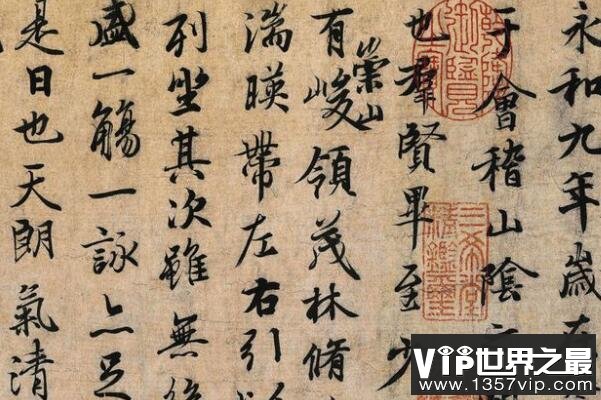 永和九年歲在
于會稽山陰
也羣賢畢至少
有崇山峻領茂林脩
湍暎帶左右引以
列坐其次雖無
盛一觴一詠亦足
是日也天朗氣清
三希堂
精鑑璽
VIP世界之最
www.1357vip.com